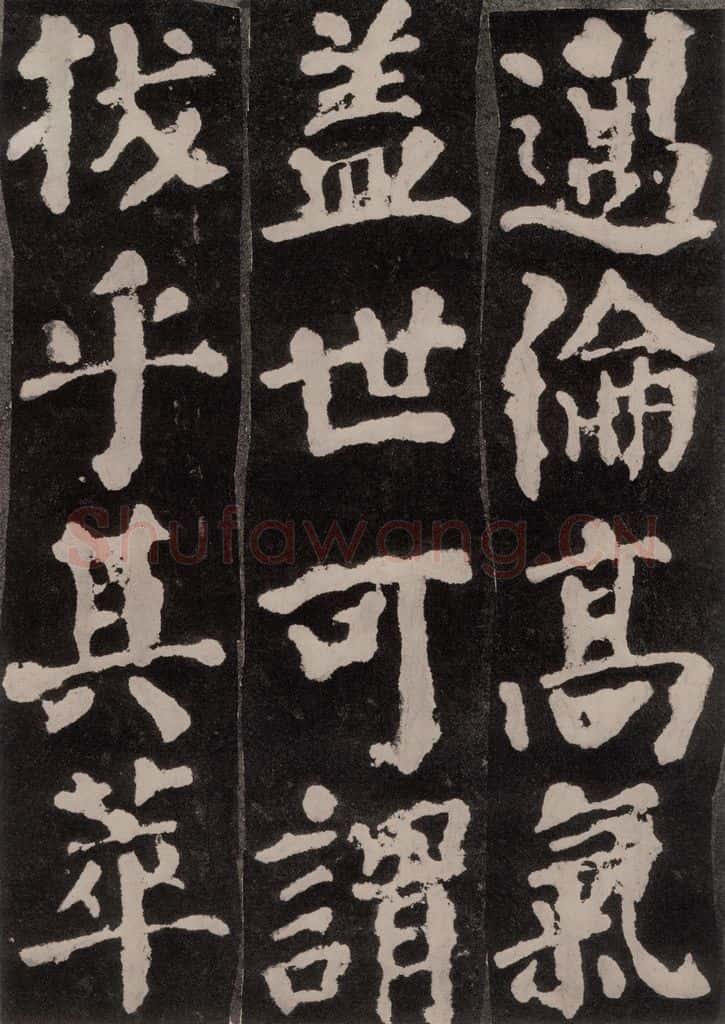 邁倫高氣
盖世可謂
拔乎其萃
Shufawang.CN